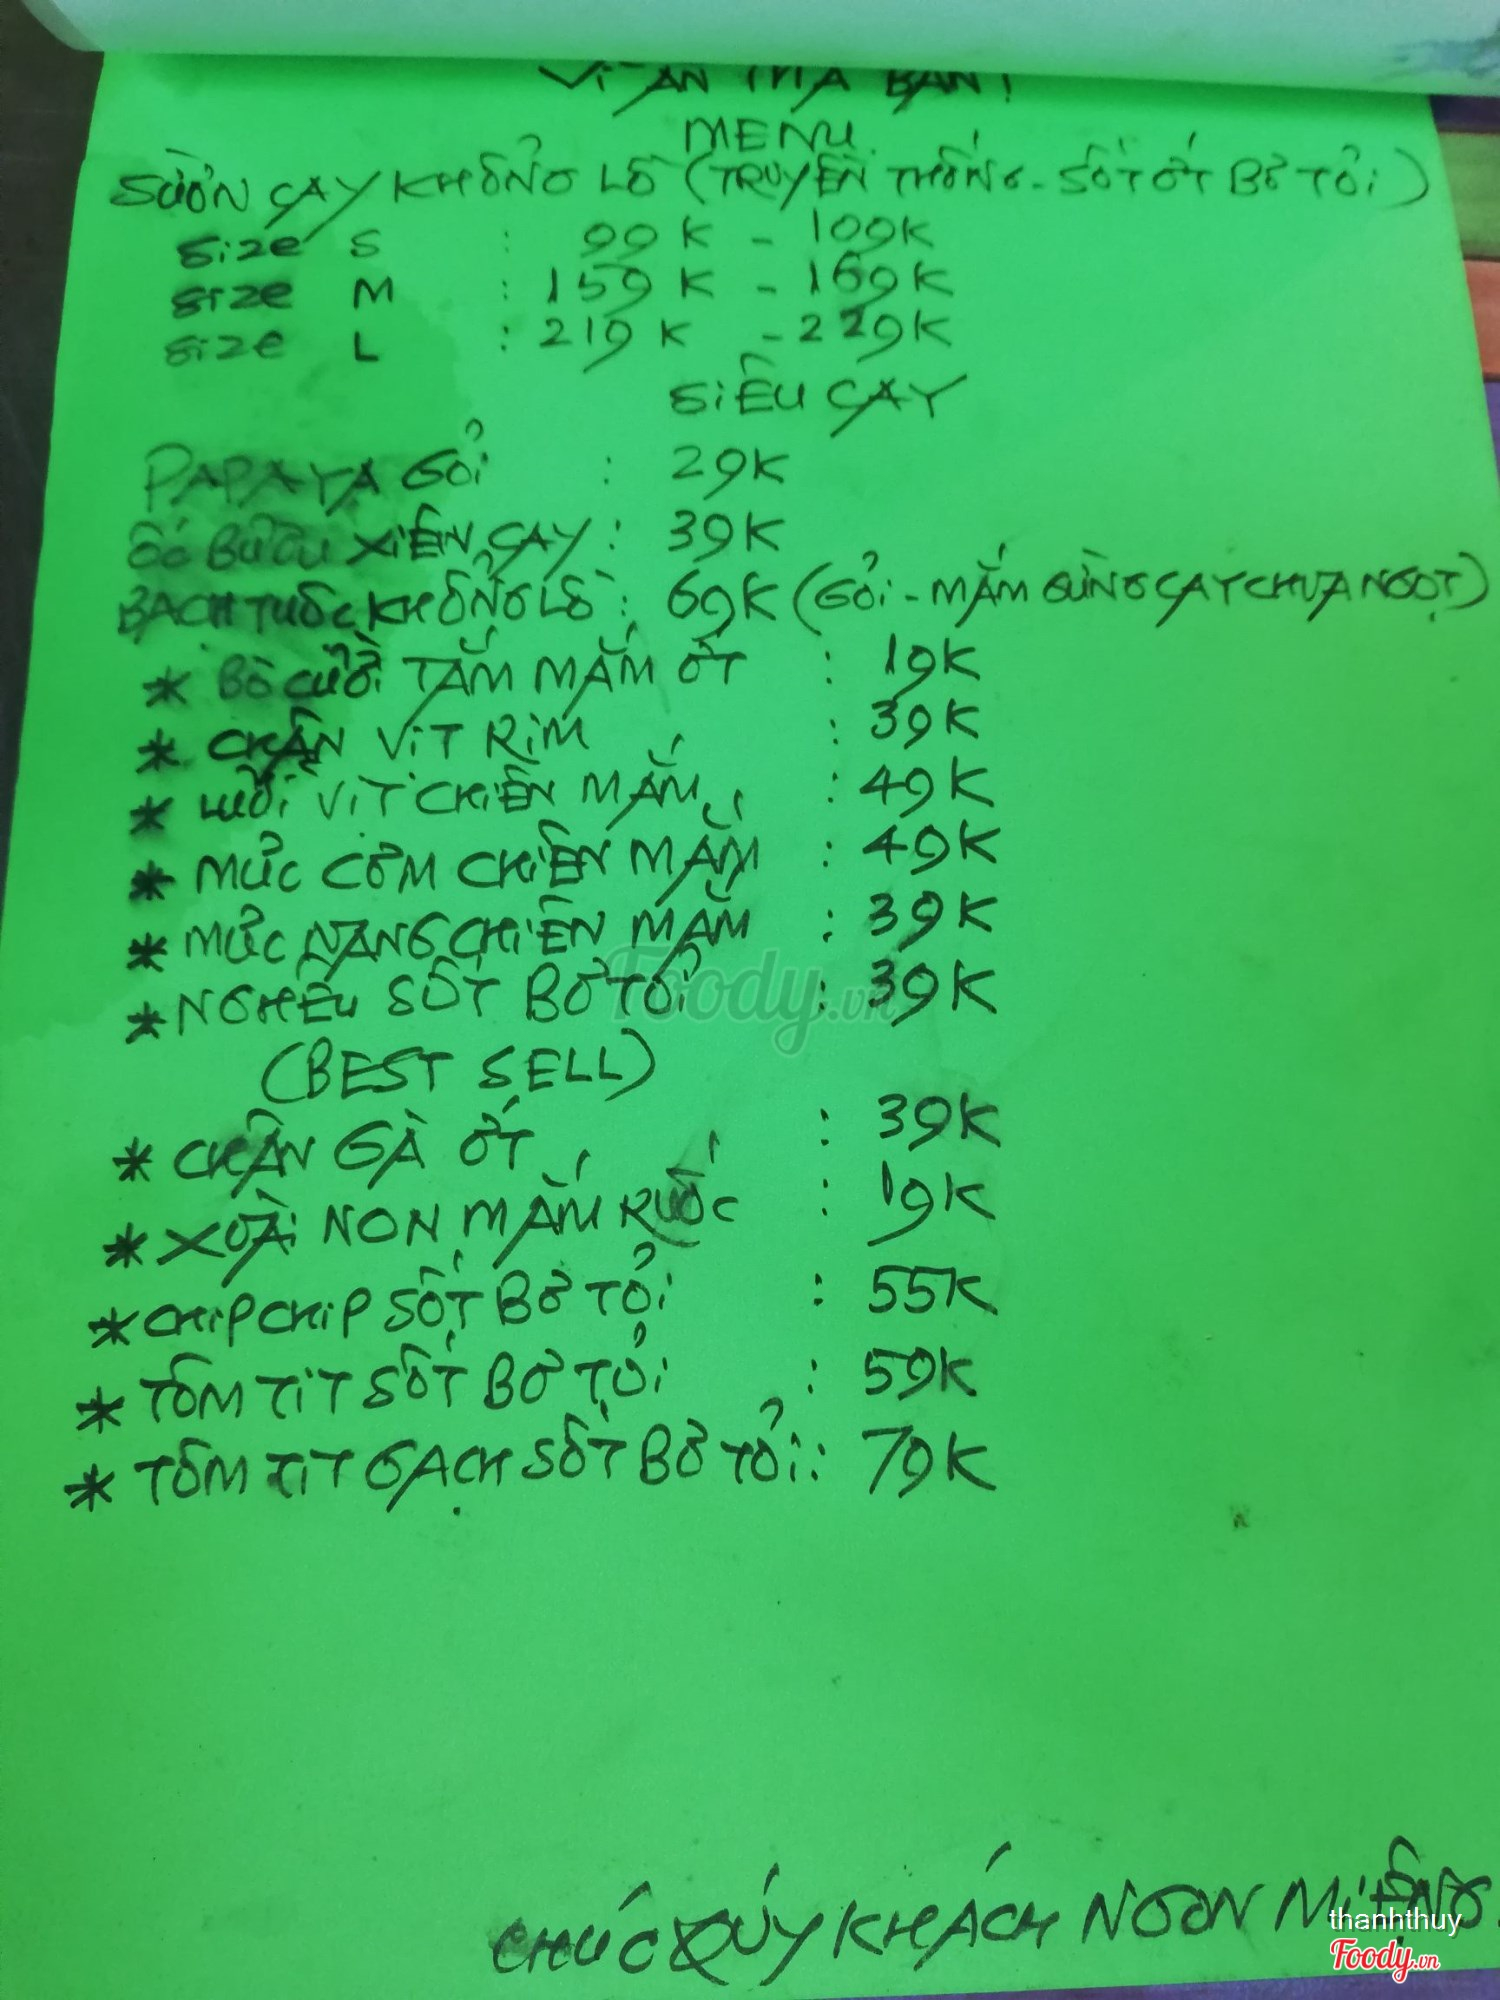 MENU
SƯỜN CAY KHỔNG LỒ (TRUYỀN THỐNG - SỐT ỚT BƠ TỎI)
Size S : 99K - 109K
Size M : 159K - 169K
Size L : 219K - 229K
SIÊU CAY
PAPAYA GỎI : 29K
ỐC BƯƠU XIÊN CAY : 39K
BẠCH TUỘC KHỔNG LỒ : 69K (GỎI - MẮM GỪNG CAY CHUA NGỌT)
* BÒ CƯỜI TẮM MẮM ỚT : 19K
* CHÂN VỊT RIM : 39K
* LƯỠI VỊT CHIÊN MẮM : 49K
* MỰC CƠM CHIÊN MẮM : 49K
* MỰC NANG CHIÊN MẮM : 39K
* NGHÊU SỐT BƠ TỎI : 39K
(BEST SELL)
* CHÂN GÀ ỚT : 39K
* XOÀI NON MẮM RUỐC : 19K
* CHIP CHIP SỐT BƠ TỎI : 55K
* TÔM TÍT SỐT BƠ TỎI : 59K
* TÔM TÍT GẠCH SỐT BƠ TỎI : 79K
Foody.vn
CHÚC QUÝ KHÁCH NGON MIỆNG
thanhthuy
Foody.vn